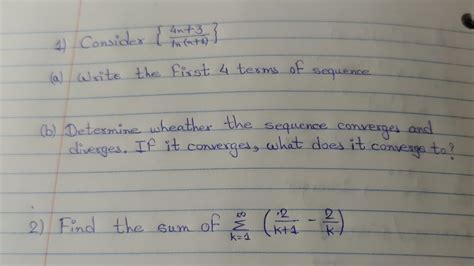 1) Consider { (4n+3)/(ln(n+1)) }
(a) Write the first 4 terms of sequence
(b) Determine wheather the sequence converges and
diverges. If it converges, what does it converge to?
2) Find the sum of ∑_{k=1}^{∞} (2/(k+1) - 2/k)